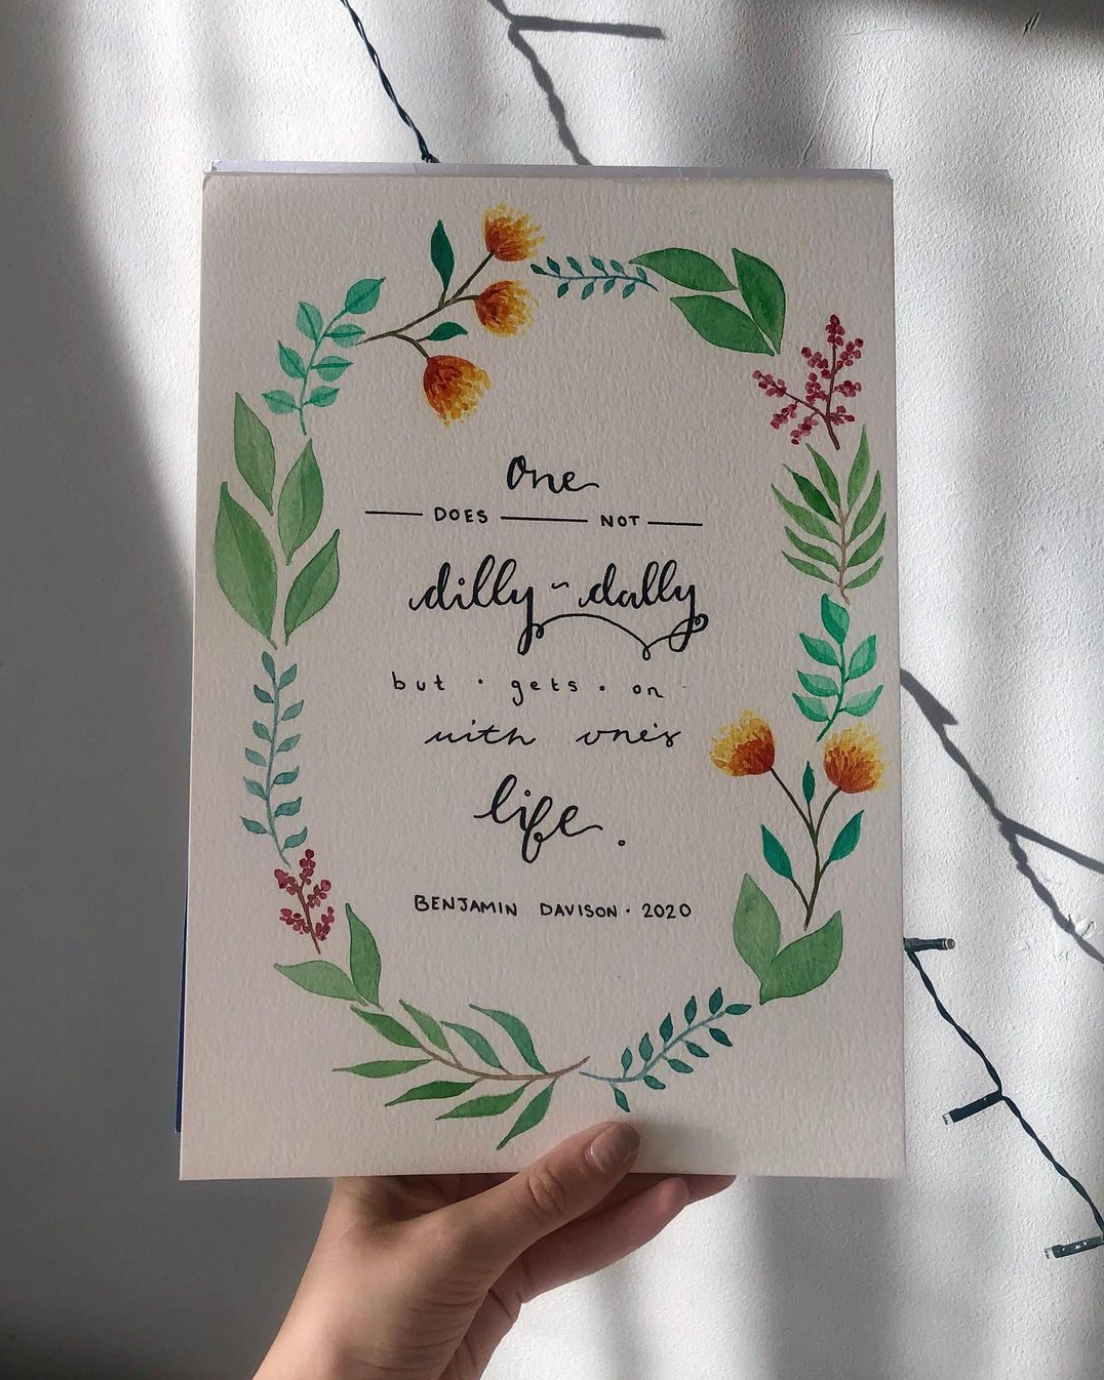 one
DOES NOT
dilly-dally
but · gets · on
with one's
life.
BENJAMIN DAVISON · 2020